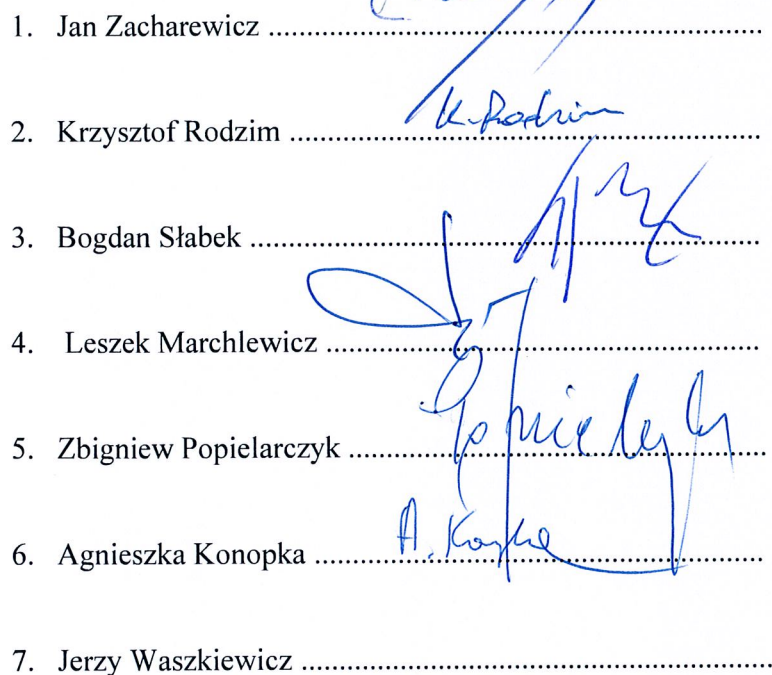 1. Jan Zacharewicz ..........................................................................
2. Krzysztof Rodzim ...... K. Rodzim ......
3. Bogdan Słabek ..........................................................................
4. Leszek Marchlewicz ..........................................................................
5. Zbigniew Popielarczyk ..........................................................................
6. Agnieszka Konopka ..........................................................................
7. Jerzy Waszkiewicz ..........................................................................